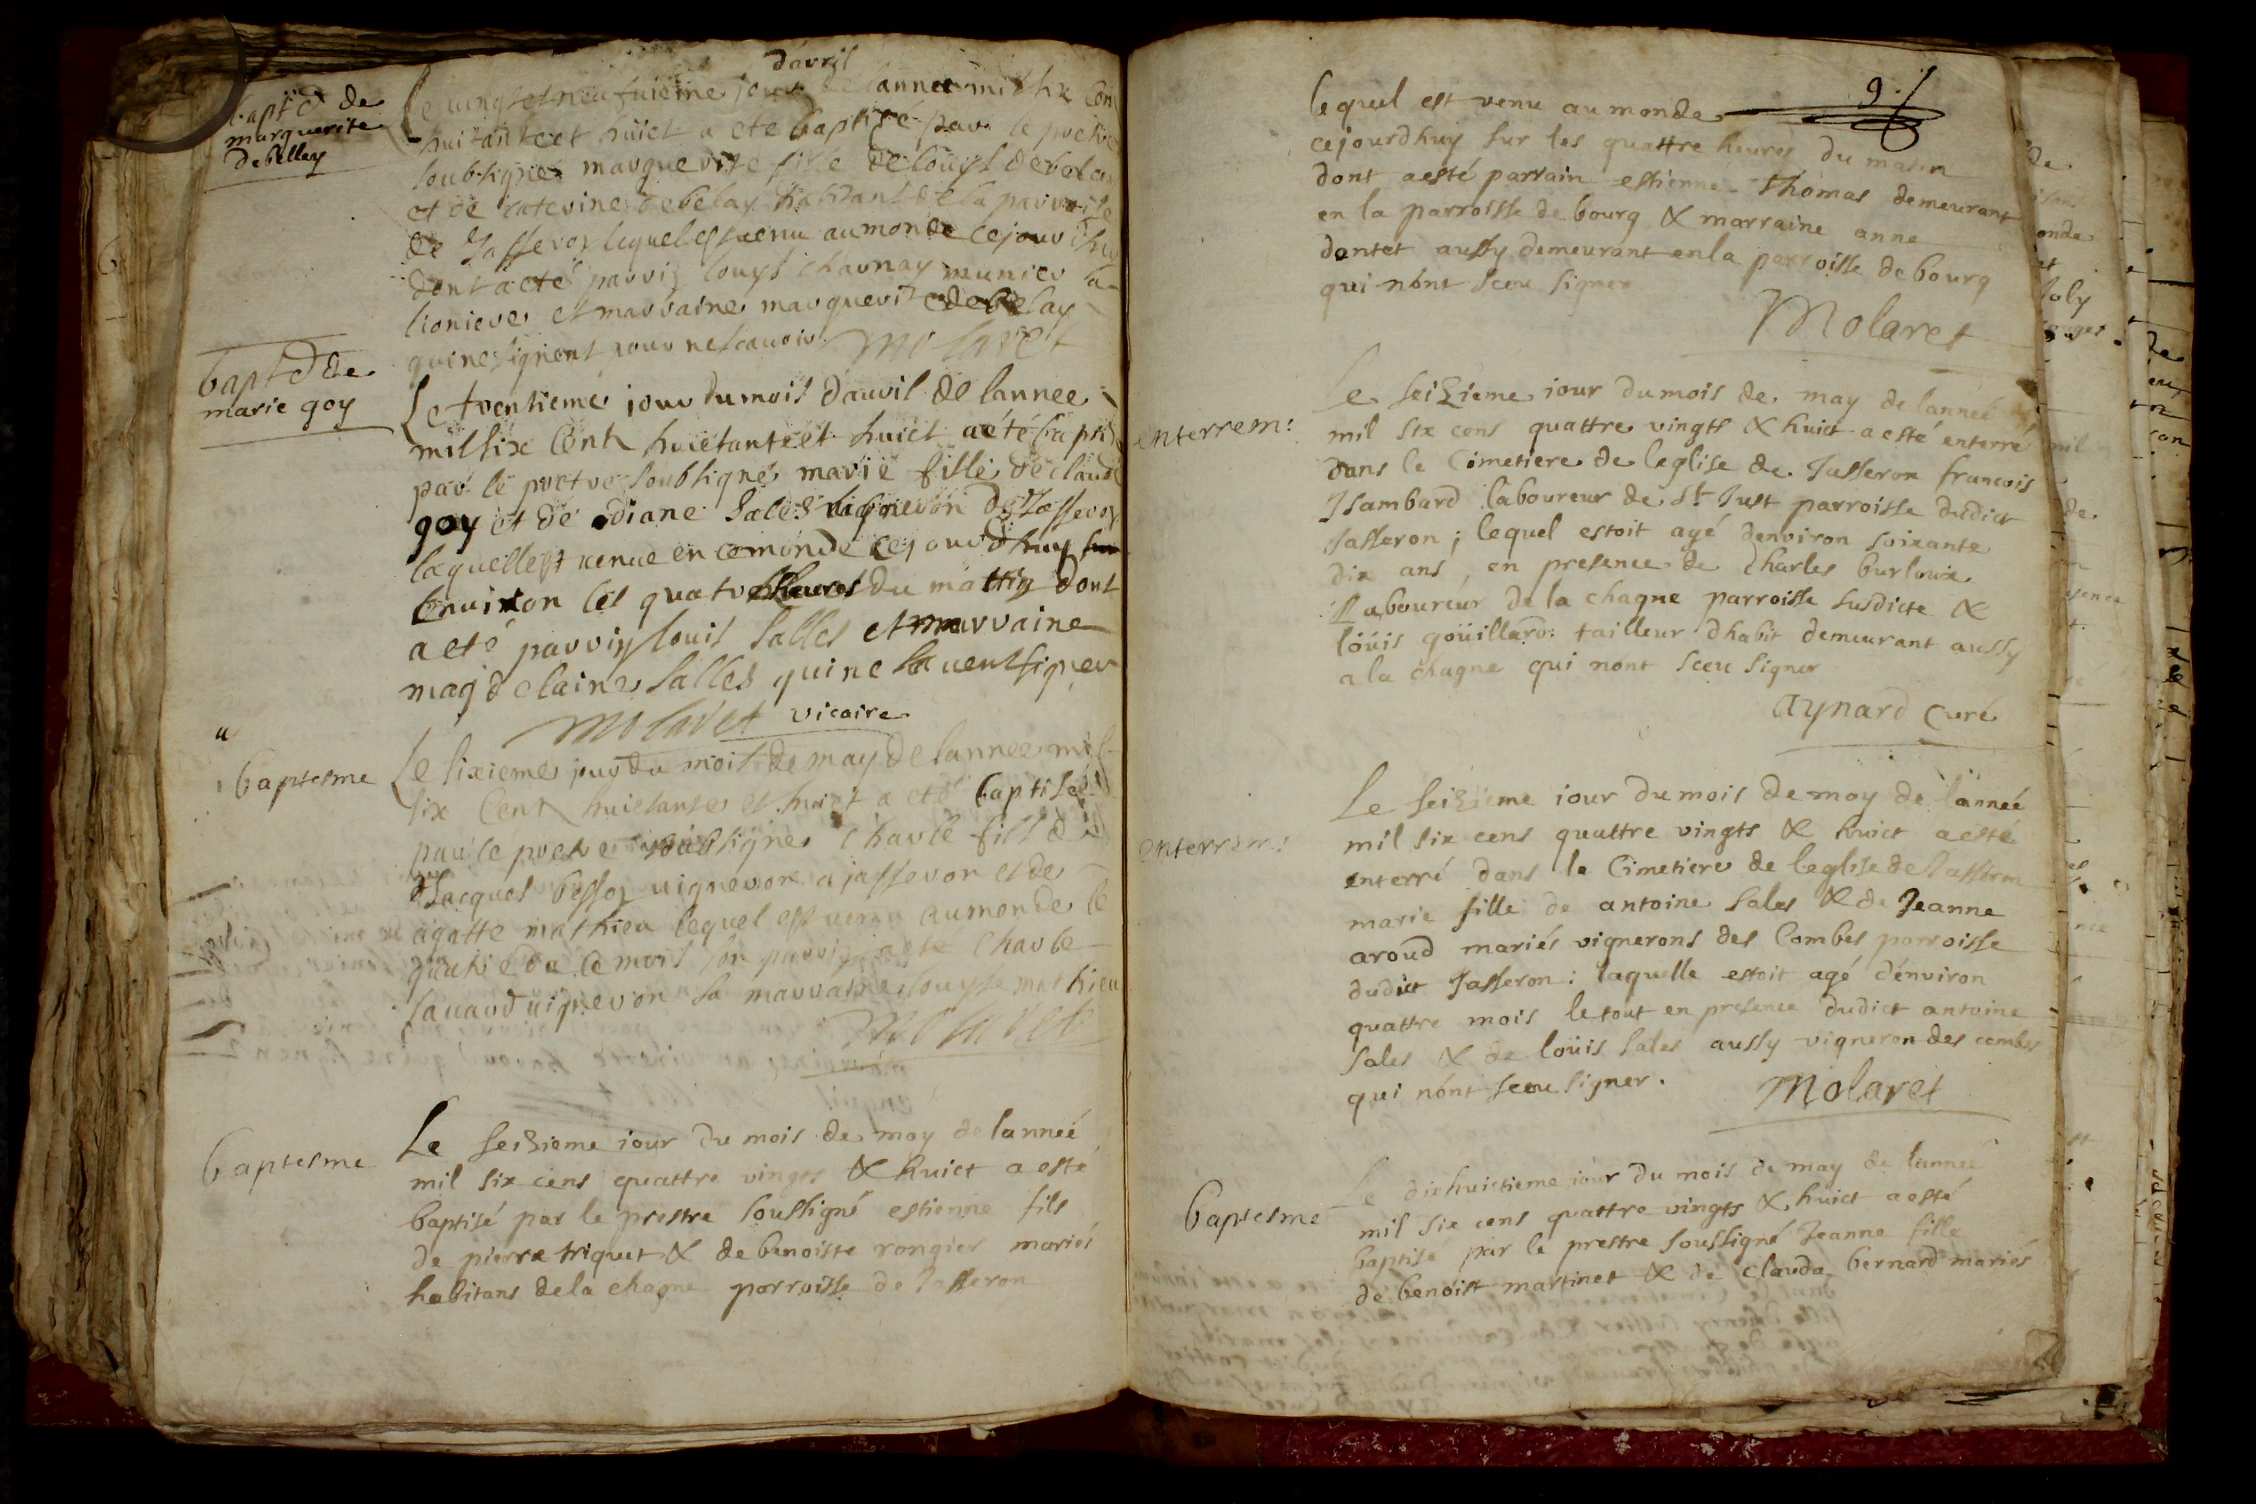 bapt^e de
marguerite
debellay
d'avril
Le vingt et neufuieme jour de lannee mil six cen
huitante et huict a ete baptisé par le pretre
soubsigné marguerite fille de louys debelay
et de caterine debelay habitant de la parroisse
de Jasseron lequel est venu au monde ce jourdhuy
dont a eté parrin louys charnay meunier a
lioniere et marraine marguerite debelay
qui ne signent pour ne scauoir Molaret
bapt^e de
marie goy
Le trentieme jour du mois dauril de lannee
mil six cent huictante et huict a été baptisé
par le pretre soubsigné marie fille de claude
goy et de diane Sales vigneron de Jasseron
laquelle est venue en ce monde ce jourdhuy sur
enuiron les quatre heures du mattin dont
a eté parrin louis Salles et marraine
magdelaine Salles qui ne sauent signer
Molaret vicaire
baptesme
Le sixieme jour du mois de may de lannee mil
six cent huictante et huict a eté baptisé
par le pretre soubsigné charle fils de
Jacques besson uigneron a jasseron et de
agatte mathieu lequel est uenu au monde le
quatrie de ce mois son parrin a ete charle
sauard uigneron sa marraine louyse mathieu
Molaret
baptesme
Le seiziome iour du mois de may de lanneé
mil six cens quattre vingts & huict a esté
baptisé par le prestre soussigné estienne fils
de pierre triquet & de benoiste rongier mariés
habitans de la chagne parroisse de Jasseron
9.
lequel est venu au monde
cejourdhuy sur les quattre heures du matin
dont a esté parrain estienne Thomas demeurant
en la parroisse de bourg & marraine anne
dantet aussy demeurant en la parroisse de bourg
qui nónt sceu signer
Molaret
enterrem:
Le seizieme iour du mois de may de lanneé
mil six cens quattre vingts & huict a esté enterré
dans le Cimetiere de leglise de Jasseron francois
Isambard laboureur de S^t Just parroisse dudict
Jasseron ; lequel estoit agé denviron soixante
dix ans, en presence de Charles burloux
Laboureur de la chagne parroisse susdicte &
loüis goüillard: tailleur dhabit demeurant aussy
a la chagne qui nónt sceu signer
Aynard Curé
enterrem:
Le seizieme iour du mois de may de lanneé
mil six cens quattre vingts & huict a esté
enterré dans le Cimetiere de leglise de Jasseron
marie fille de antoine Sales & de Jeanne
aroud mariés vignerons des Combes parroisse
dudict Jasseron : laquelle estoit agé dénviron
quattre mois le tout en presence dudict antoine
Sales & de loüis Sales aussy vigneron des combes
qui nónt sceu signer.
Molaret
baptesme
Le dixhuictieme iour du mois de may de lanneé
mil six cens quattre vingts & huict a esté
baptisé par le prestre soussigné Jeanne fille
de benoist martinet & de clauda bernard mariés